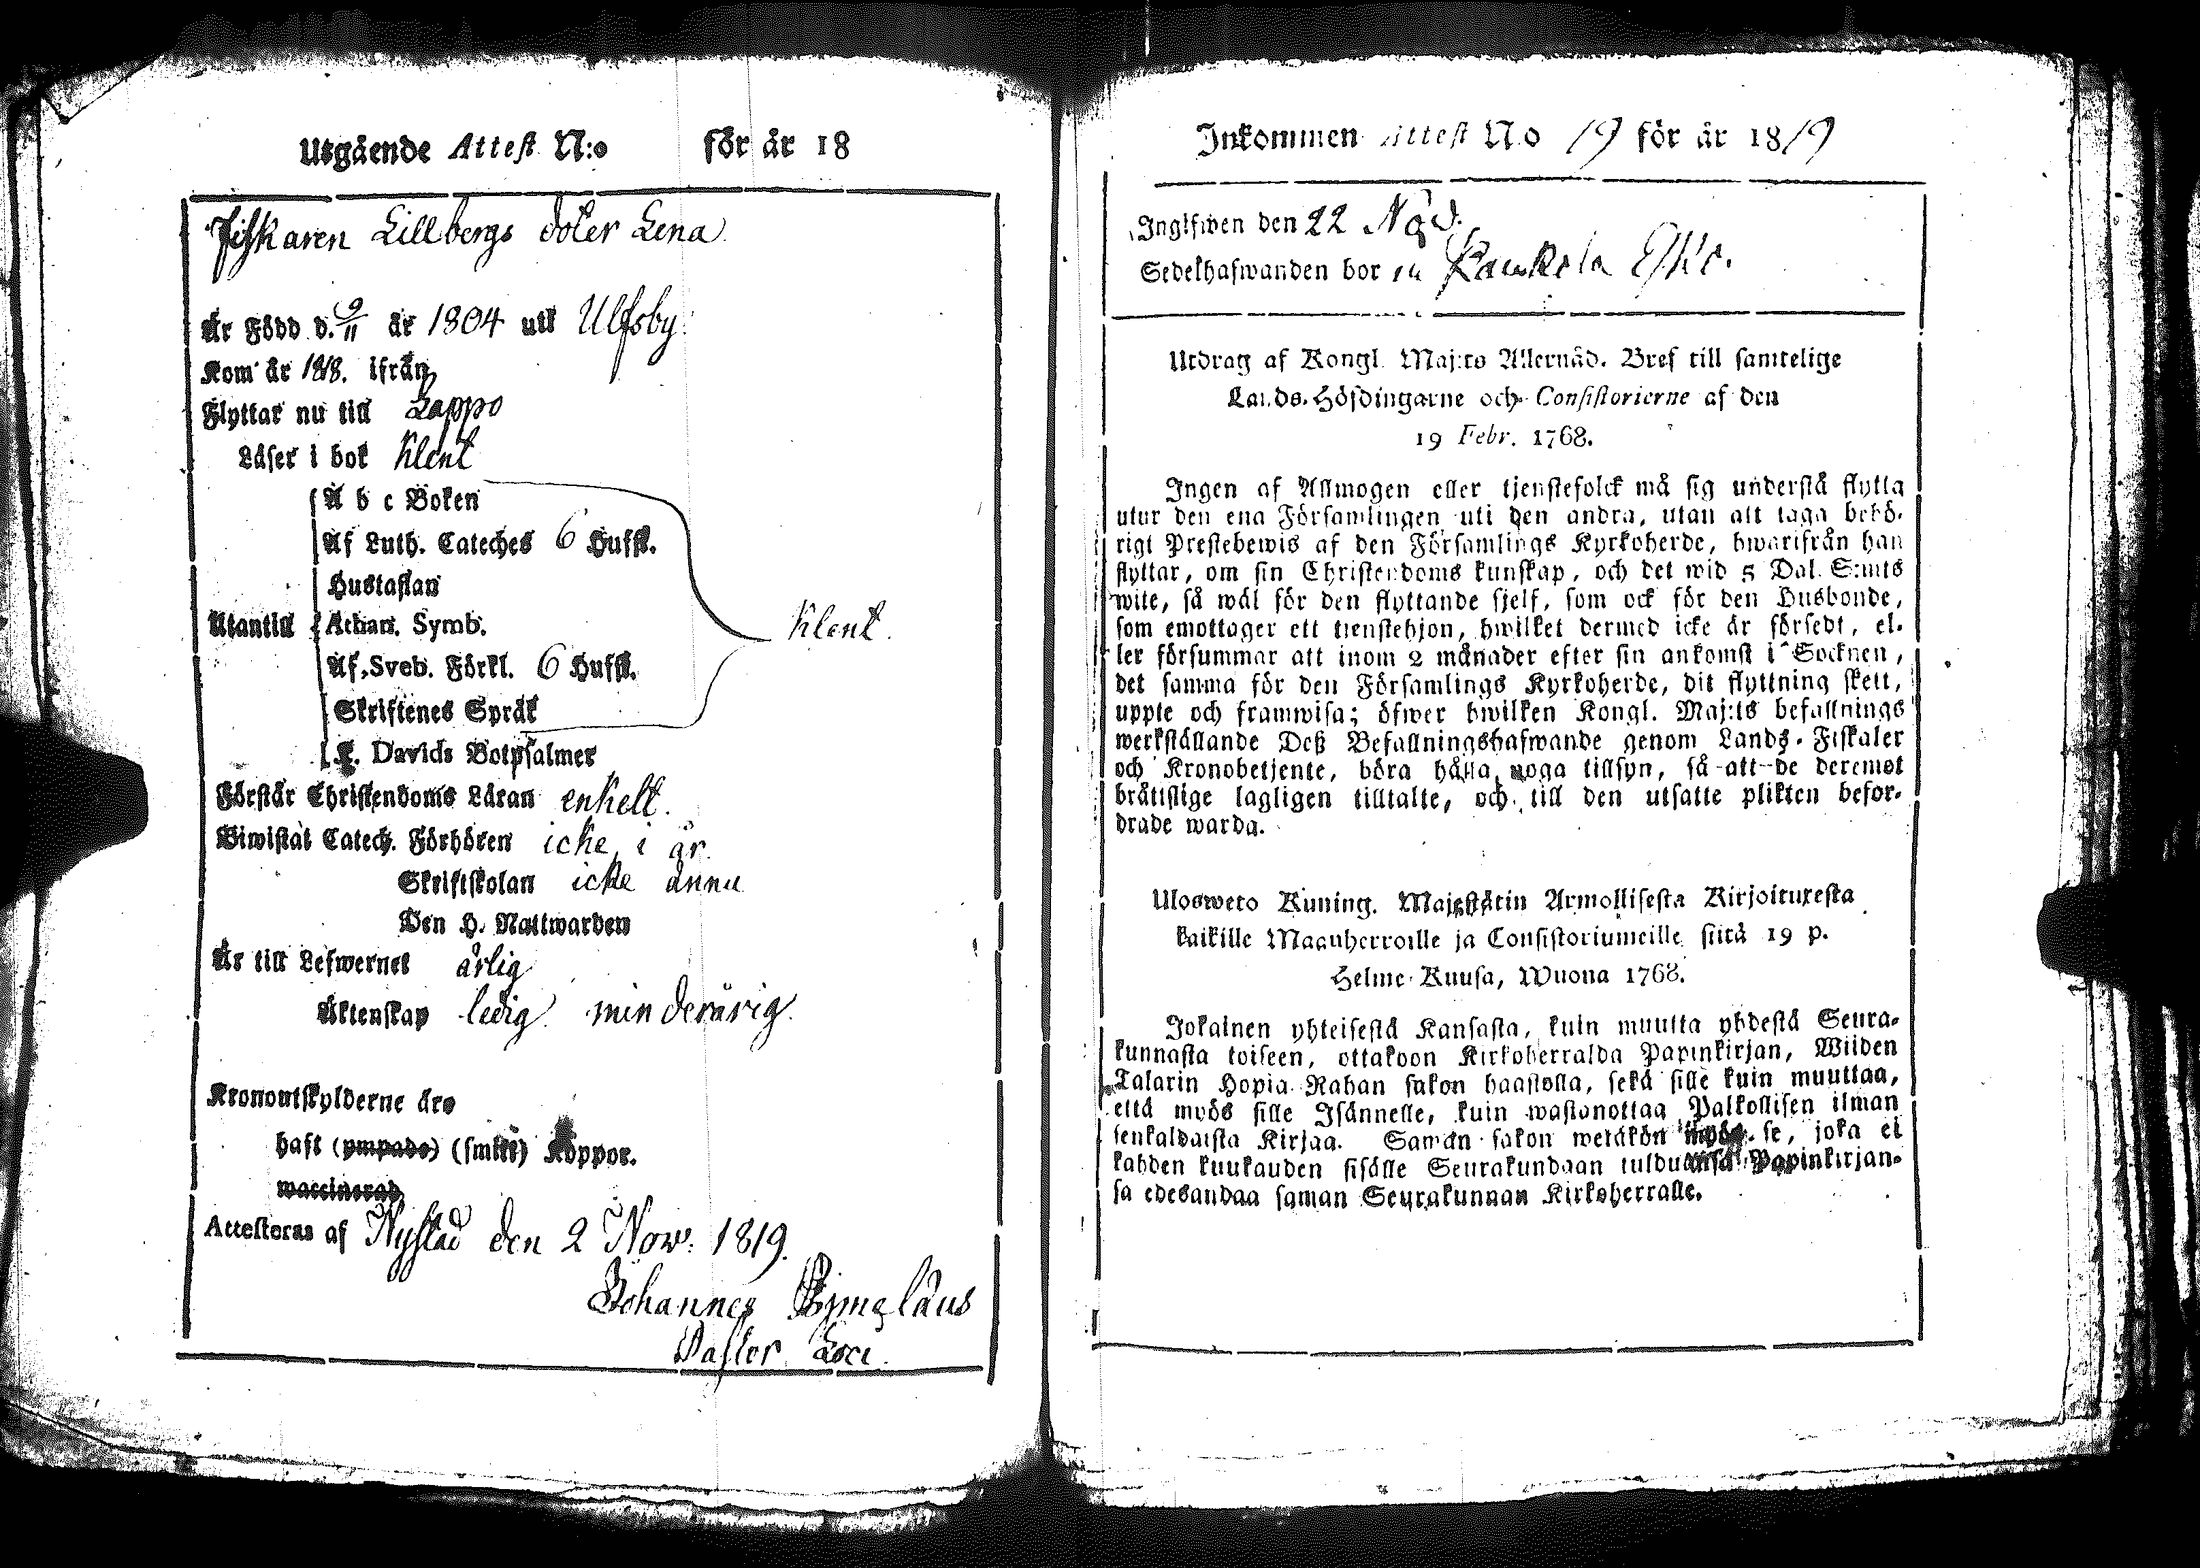 Utgående Attest N:o för år 18
Fiskaren Lillbergs doter Lena
Är Född d. 9/11 år 1804 uti Ulfsby
Kom år 1818. ifrån
Flyttar nu till Lappo
Läser i bok klent
A b c Boken
Af Luth. Cateches 6 Hufst.
Hustaflan
Utantill Athan. Symb. klent.
Af Sveb. Förkl. 6 Hufst.
Skriftenes Språk
K. Davids Botpsalmer
Förstår Christendoms Läran enkelt.
Biwistat Catech. Förhören icke i år.
Skriftskolan icke ännu
Den H. Nattwarden
Är till Lefwernet ärlig
Äktenskap ledig minderårig.
Kronoutskylderne äro
haft (ympade) (smitt) Koppor.
waccinerad
Attesteras af Nystad den 2 Now. 1819.
Johannes
Pastor Loci.
Inkommen Attest No 19 för år 1819
Ingifwen den 22 Nov.
Sedelhafwanden bor
Utdrag af Kongl. Maj:ts Allernåd. Bref till samtelige
Lands-Höfdingarne och Consistorierne af den
19 Febr. 1768.
Ingen af Allmogen eller tjenstefolck må sig understå flytta
utur den ena Församlingen uti den andra, utan att taga behö-
rigt Prestebewis af den Församlings Kyrkoherde, hwarifrån han
flyttar, om sin Christendoms kunskap, och det wid 5 Dal. S:mts
wite, så wäl för den flyttande sjelf, som ock för den Husbonde,
som emottager ett tienstehjon, hwilket dermed icke är försedt, el-
ler försummar att inom 2 månader efter sin ankomst i Socknen,
det samma för den Församlings Kyrkoherde, dit flyttning skett,
uppte och framwisa; öfwer hwilken Kongl. Maj:ts befallnings
werkställande Deß Befallningshafwande genom Lands-Fiskaler
och Kronobetjente, böra hålla noga tillsyn, så att de deremot
bråttslige lagligen tilltalte, och till den utsatte plikten befor-
drade warda.
Ulosweto Kuning. Majestätin Armollisesta Kirjoituxesta
kaikille Maanherroille ja Consistoriumeille siitä 19 p.
Helme-Kuusa, Wuona 1768.
Jokainen yhteisestä Kansasta, kuin muutta yhdestä Seura-
kunnasta toiseen, ottakoon Kirkoherralda Papinkirjan, Wiiden
Talarin Hopia Rahan sakon haastolla, sekä sille kuin muuttaa,
että myös sille Isännelle, kuin wastanottaa Palkollisen ilman
senkaldaista Kirjaa. Samān sakon wetäkön myös se, joka ei
kahden kuukauden sisälle Seurakundaan tulduansa Papinkirjan-
sa edesandaa saman Seurakunnan Kirkoherralle.